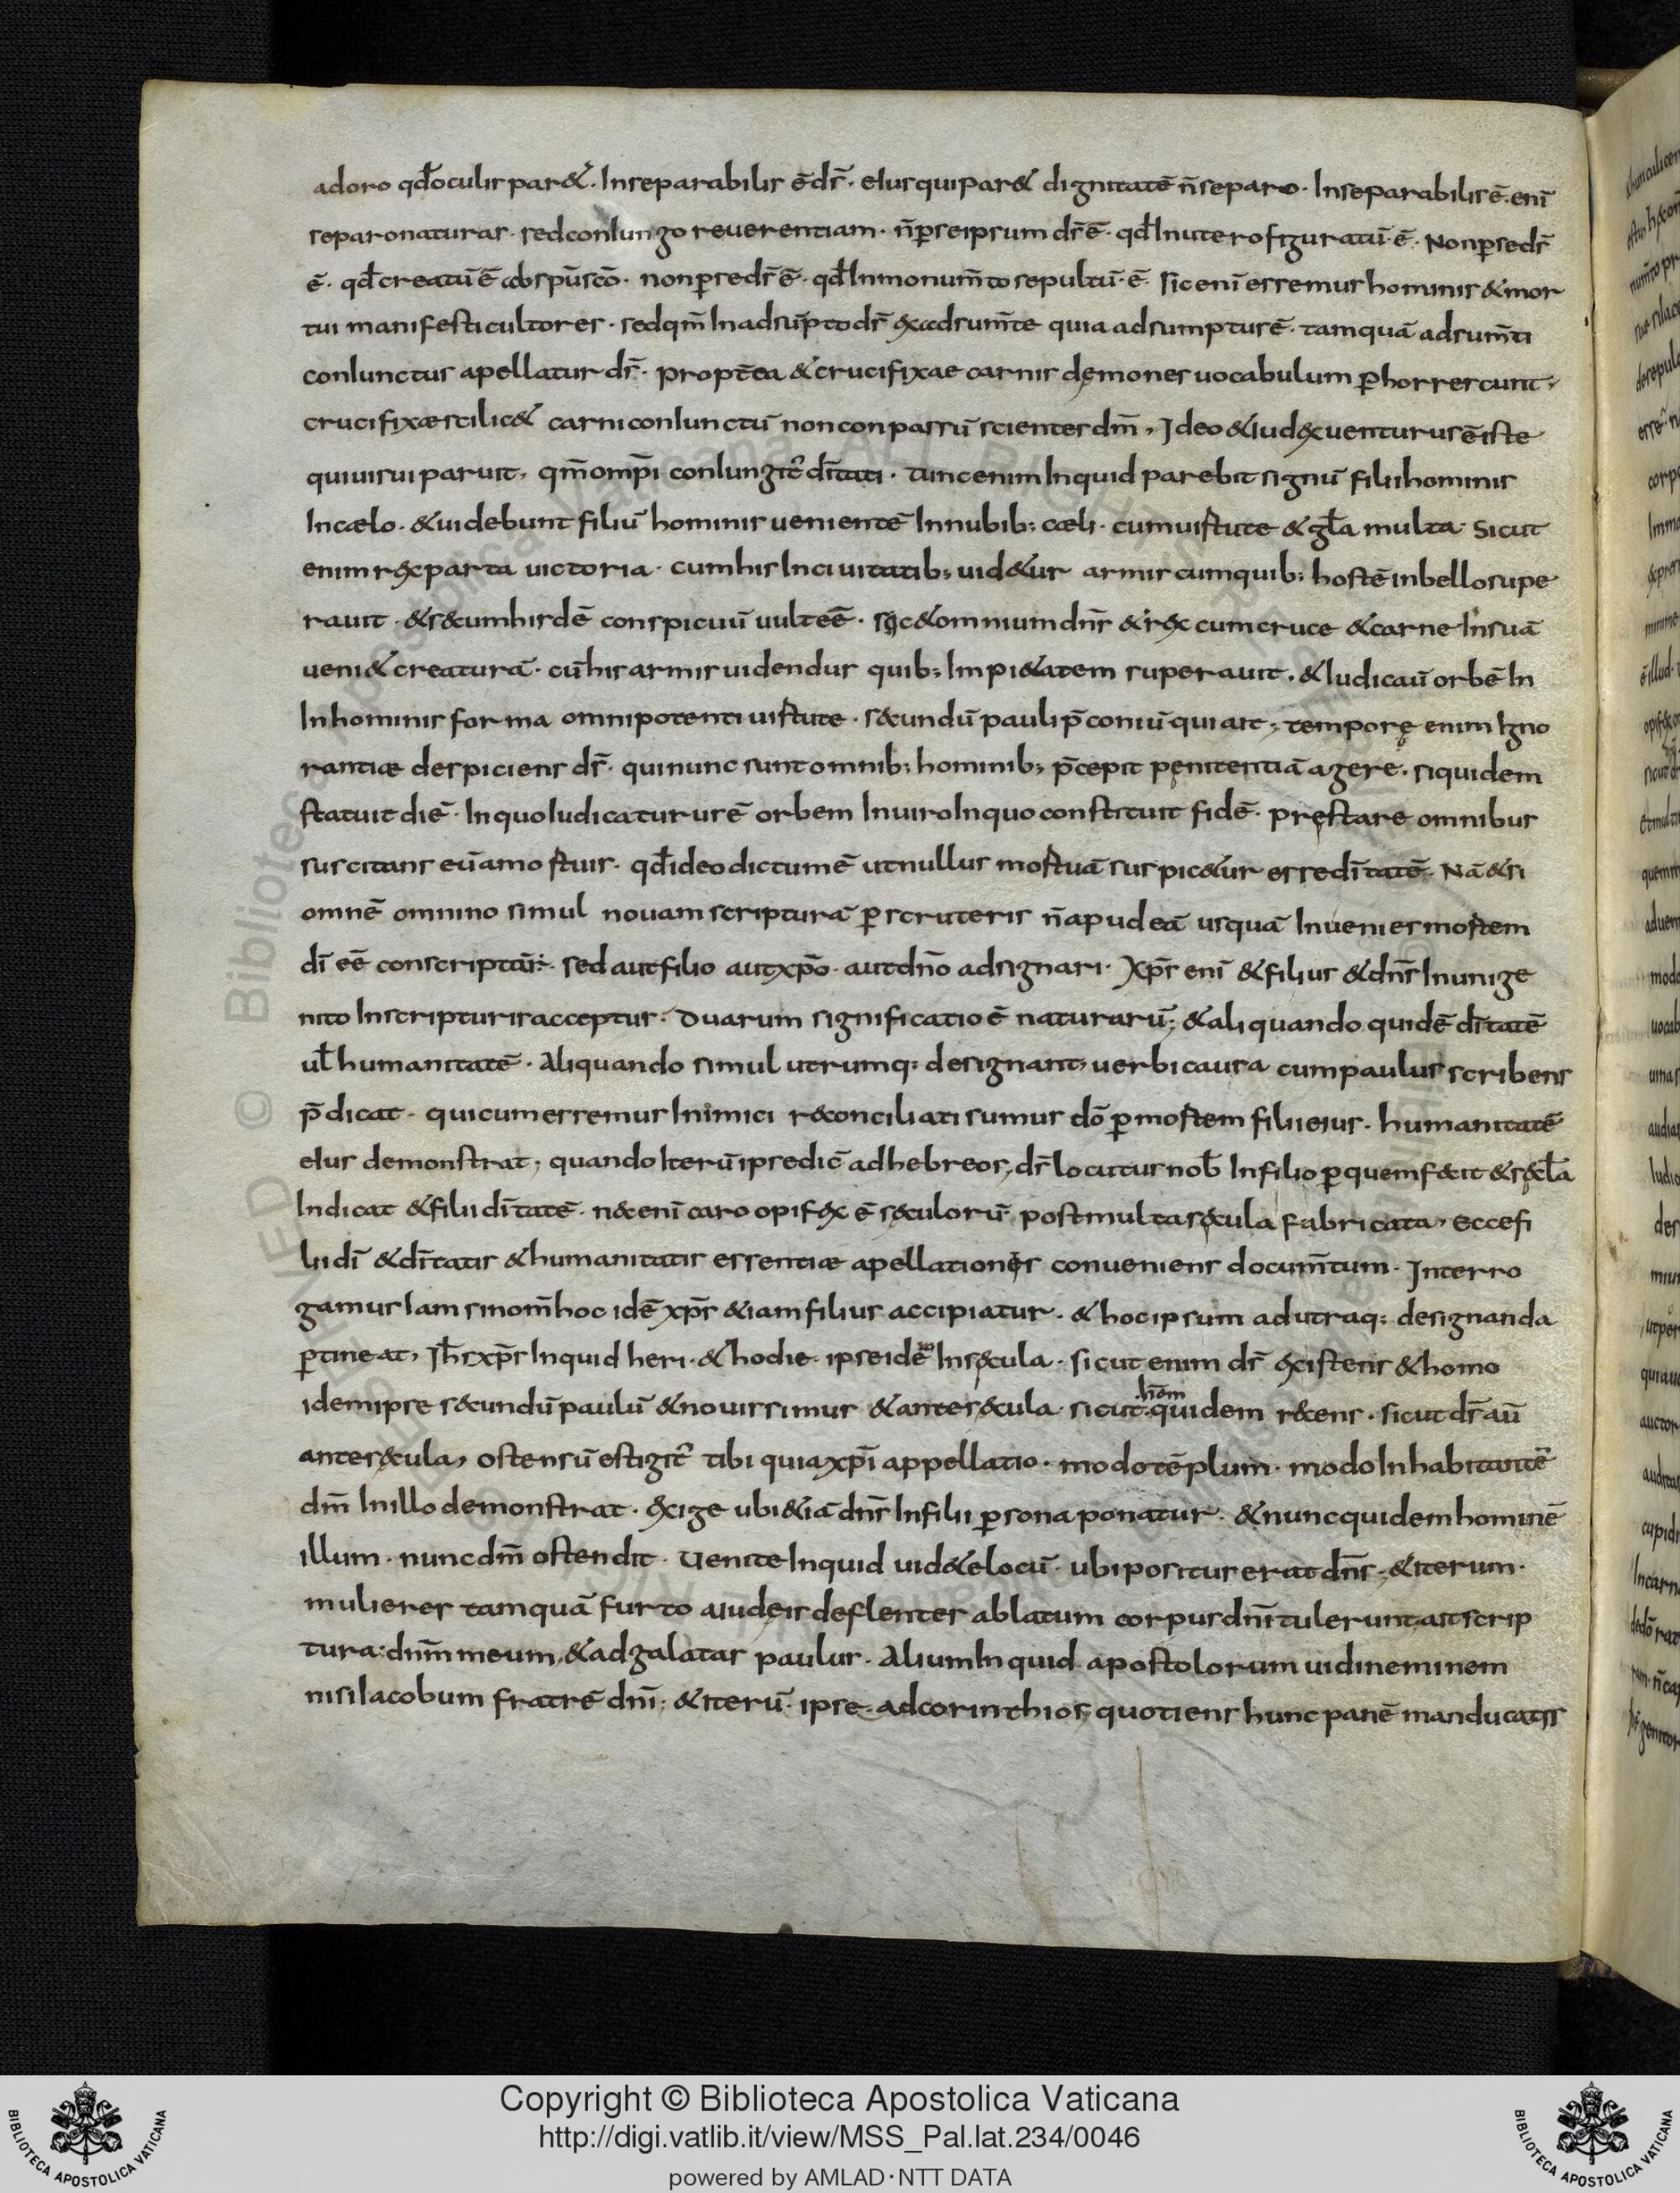 adoro qd̄ oculis par&. Inseparabilis ē ds̄. eius qui par& dignitatē n̄ separo. Inseparabilis ē. enī
separo naturas. sed coniungo reuerentiam. n̄ p̱ se ipsum ds̄ ē. qd̄ In utero figuratū. ē. Non p̱ se ds̄
ē. qd̄ creatū ē ab sp̄u sc̄o. non p̱ se ds̄ ē. qd̄ In monum̄to sepultū. ē. sic enī essemus hominis & mor
tui manifesti cultores. sed qm̄ In adsūpto ds̄ ex adsum̄te quia adsumptus ē. tamquā adsum̄ti
coniunctus apellatur ds̄. propt̄ea & crucifixae carnis dęmones uocabulum p̱horrescunt.
crucifixæ scilic& carni coniunctū non conpassū scientes dm̄, Ideo & iudex uenturus ē iste
qui uisui paruit, qm̄ omp̄i coniungit᷑ dī̄tati. tunc enim Inquid parebit signū filii hominis
In cælo. & uidebunt filiū hominis uenientē In nubib; cæli. cum uirtute & gl̄a multa. sicut
enim rex parta uictoria. cum his In ciuitatib; uid&ur armis cum quib; hostē in bello supe
rauit. & secum hisdē conspicuū uult eē. sic & omnium dn̄s & rex cum cruce & carne In suā
ueni& creaturā. cū his armis uidendus quib; Impi&atem superauit. & Iudicaū orbē In
In hominis forma omnipotenti uirtute. secundū pauli p̄coniū qui ait; temporę enim Igno
rantiæ despiciens ds̄. qui nunc sunt omnib; hominib; p̄cepit pęnitentiā agere. siquidem
statuit diē. In quo Iudicaturus ē orbem In uiro In quo constituit fidē. pręstare omnibus
suscitans eū a mortuis. qd̄ ideo dictum ē ut nullus mortuā suspic&ur esse dī̄tatē. Nā & si
omnē omnino simul nouam scripturā p̱scruteris n̄ apud eā usquā Inuenies mortem
dī eē conscriptā. sed aut filio aut xp̄o. aut dn̄o adsignari. Xp̄s enī & filius & dn̄s In unige
nito In scripturis acceptus. Duarum significatio ē naturarū; & aliquando quidē dī̄tatē
ul̄ humanitatē. Aliquando simul utrumq; designant, uerbi causa cum paulus scribens
p̄dicat. qui cum essemus Inimici reconciliati sumus dō p̱ mortem filii eius. humanitatē
eius demonstrat; quando Iterū ipse dic̄ ad hebreos, ds̄ locutus nob̄ In filio p̱ quem fecit & secl̄a
Indicat & filii dī̄tatē. nec enī caro opifex ē seculorū post multa sęcula fabricata, Ecce fi
lii dī & dī̄tatis & humanitatis essentiæ apellationis conueniens docum̄tum. Interro
gamus Iam si nom̄ hoc idē xp̄s & iam filius accipiatur. & hoc ipsum ad utraq; designanda
p̱tineat, Ih̄s xp̄s Inquid heri. & hodie. ipse idē In sęcula. sicut enim ds̄ existens & homo
idem ipse secundū paulū & nouissimus & ante secula. sicut hom̄ quidem recens. sicut ds̄ aū
ante sęcula, ostensū est igit᷑ tibi quia xp̄i appellatio. modo tēplum. modo Inhabitantē
dm̄ In illo demonstrat. exige ubi &iā dn̄s In filii p̱sona ponatur. & nunc quidem hominē
illum. nunc dm̄ ostendit. Uenite Inquid uid&e locū. ubi positus erat dn̄s; & iterum.
mulieres tamquā furto a iudęis deflentes ablatum corpus dn̄i tulerunt ait scrip
tura: dnm̄ meum, & ad galatas paulus. Alium Inquid apostolorum uidi neminem
nisi Iacobum fratrē dn̄i; & iterū. ipse. ad corinthios, quotiens hunc panē manducatis
Copyright © Biblioteca Apostolica Vaticana
http://digi.vatlib.it/view/MSS_Pal.lat.234/0046
powered by AMLAD·NTT DATA
BIBLIOTECA APOSTOLICA VATICANA
BIBLIOTECA APOSTOLICA VATICANA